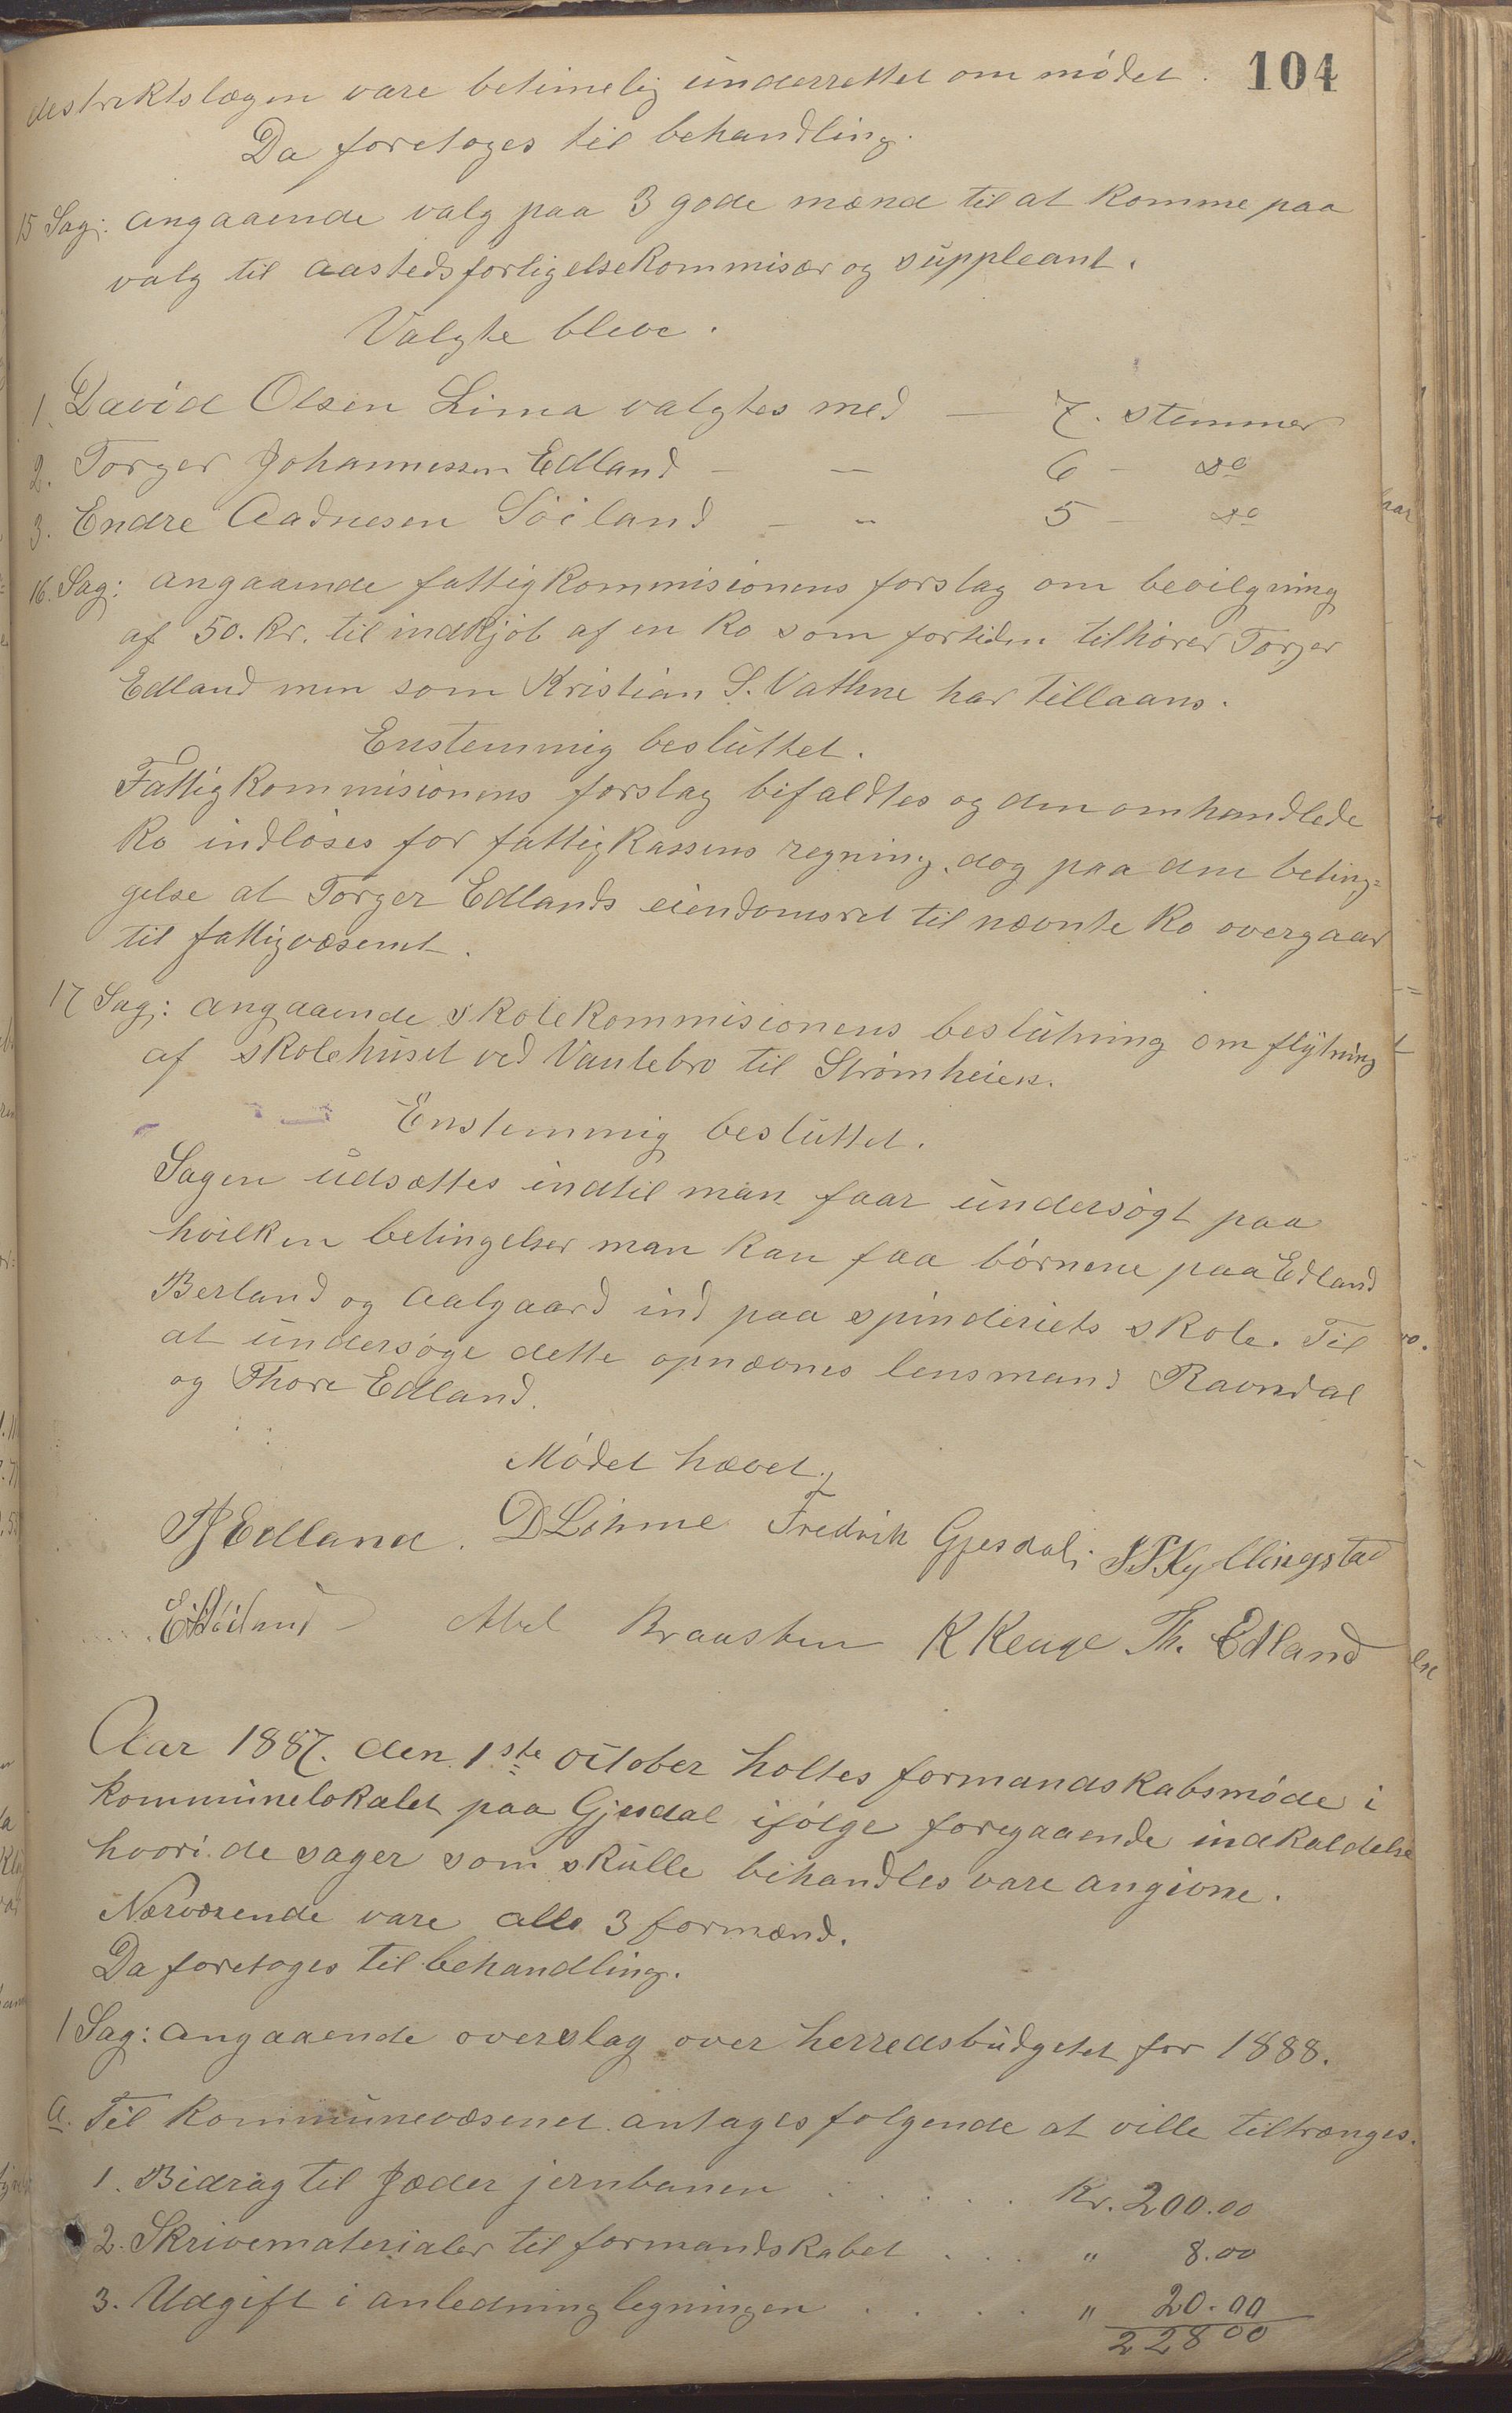 104
destriktslægen vare betimelig underrettet om mødet.
Da foretoges til behandling.
15 Sag: angaaende valg paa 3 gode mænd til at komme paa
valg til aastedsforligelsekommisær og suppleant.
Valgte bleve.
1. David Olsen Lima valgtes med — 7. stemmer
2. Torger Johannessen Edland — — 6 — do
3. Endre Aadnesen Söiland — — 5 — do
16. Sag: angaaende fattigkommisionens forslag om bevilgning
af 50. kr. til indkjöb af en ko som fortiden tilhörer Torger
Edland men som Kristian S. Vathne har tillaans.
Enstemmig besluttet.
Fattigkommisionens forslag bifaldtes og den omhandlede
ko indlöses for fattigkassens regning, dog paa den beting=
gelse at Torger Edlands eiendomsret til nævnte ko overgaar
til fattigvæsenet.
17 Sag: angaaende skolekommisionens beslutning om flytning
af skolehuset ved Vaulebro til Strømheien.
Enstemmig besluttet.
Sagen udsættes indtil man faar undersögt paa
hvilken betingelser man kan faa börnene paa Edland
Berland og Aalgaard ind paa spinderiets skole. Til
at undersöge dette opnævnes lensmand Ravndal
og Thore Edland.
Mödet hævet.
TJ Edland. D Lima Fredrik Gjesdal. S S Kyllingstad
E A Söiland Abel Braasten K Kenge Th. Edland
Aar 1887. den 1ste october holtes formandskabsmøde i
kommunelokalet paa Gjesdal ifölge foregaaende indkaldelse
hvori de sager som skulle behandles vare angivne.
Nærværende vare alle 3 formænd.
Da foretoges til behandling.
1 Sag: angaaende overslag over herredsbudgetet for 1888.
a. Til kommunevæsenet antages folgende at ville tiltrænges.
1. Bidrag til Jæder jernbanen . . . . . Kr. 200.00
2. Skrivematerialer til formandskabet . . . " 8.00
3. Udgift i anledning legningen . . . . " 20.00
228 00